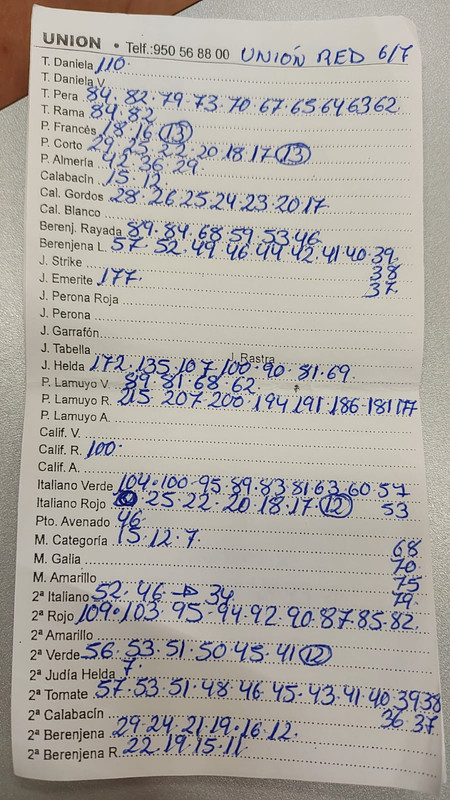 UNION • Telf.:950 56 88 00 UNIÓN RED 6/7
T. Daniela 110.
T. Daniela V.
T. Pera 84. 82. 79. 73. 70. 67. 65 64 63 62
T. Rama 84. 82
P. Francés 18. 16 (13)
P. Corto 29. 25. 22. 20 18. 17 (13)
P. Almería 42. 36. 29.
Calabacín 15. 12
Cal. Gordos 28. 26 25 24 23 20 17
Cal. Blanco
Berenj. Rayada 89. 84. 68. 59. 53. 46
Berenjena L. 57. 52. 49. 46. 44. 42. 41 40. 39
J. Strike 38
J. Emerite 177. 37
J. Perona Roja
J. Perona
J. Garrafón
J. Tabella J. Rastra
J. Helda 172. 135. 107. 100. 90. 81. 69
P. Lamuyo V. 89. 81. 68. 62
P. Lamuyo R. 215. 207. 200. 194 191. 186. 181 177
P. Lamuyo A.
Calif. V.
Calif. R. 100.
Calif. A.
Italiano Verde 104. 100. 95. 89. 83 81 63. 60. 57
Italiano Rojo 25. 22. 20 18. 17. (12) 53
Pto. Avenado 46
M. Categoría 15. 12. 7. 68
M. Galia 70
M. Amarillo 75
2ª Italiano 52. 46 → 34 79
2ª Rojo 109. 103. 95. 94. 92. 90. 87. 85. 82
2ª Amarillo
2ª Verde 56. 53. 51. 50. 45. 41 (12)
2ª Judía Helda 7.
2ª Tomate 57. 53. 51. 48. 46. 45. 43. 41. 40. 39 38
2ª Calabacín 36. 37
2ª Berenjena 29. 24. 21. 19. 16. 12.
2ª Berenjena R. 22. 19. 15. 11